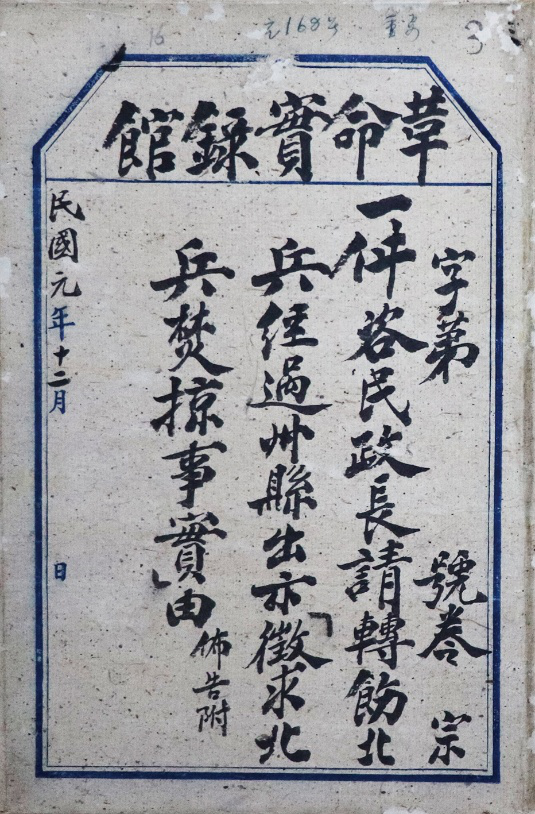 元168号
革命實錄館
字第 號卷宗
一件咨民政長請轉飭北
兵經過州縣出示徵求北
兵焚掠事實由
佈告附
民國元年十二月 日